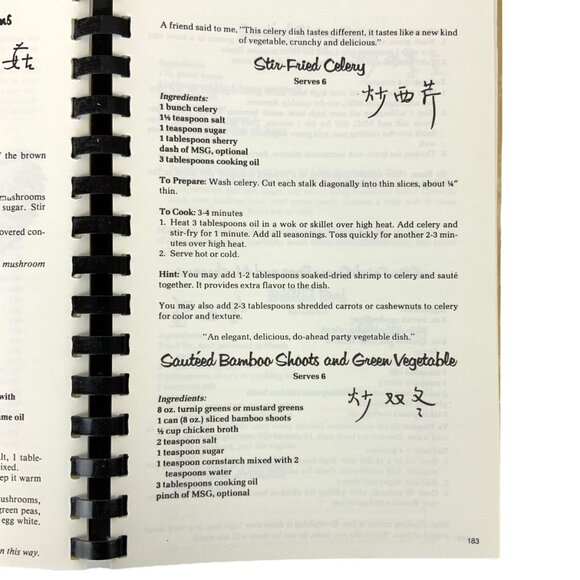 ms
菇
" the brown
mushrooms
sugar. Stir
overed con-
mushroom
with
ame oil
lt, 1 table-
ixed.
ep it warm
ushrooms,
green peas,
egg white.
n this way.
A friend said to me, "This celery dish tastes different, it tastes like a new kind
of vegetable, crunchy and delicious."
Stir-Fried Celery
Serves 6
炒西芹
Ingredients:
1 bunch celery
1½ teaspoon salt
1 teaspoon sugar
1 tablespoon sherry
dash of MSG, optional
3 tablespoons cooking oil
To Prepare: Wash celery. Cut each stalk diagonally into thin slices, about ¼"
thin.
To Cook: 3-4 minutes
1. Heat 3 tablespoons oil in a wok or skillet over high heat. Add celery and
stir-fry for 1 minute. Add all seasonings. Toss quickly for another 2-3 min-
utes over high heat.
2. Serve hot or cold.
Hint: You may add 1-2 tablespoons soaked-dried shrimp to celery and sauté
together. It provides extra flavor to the dish.
You may also add 2-3 tablespoons shredded carrots or cashewnuts to celery
for color and texture.
"An elegant, delicious, do-ahead party vegetable dish."
Sautéed Bamboo Shoots and Green Vegetable
Serves 6
炒双冬
Ingredients:
8 oz. turnip greens or mustard greens
1 can (8 oz.) sliced bamboo shoots
½ cup chicken broth
2 teaspoon salt
1 teaspoon sugar
1 teaspoon cornstarch mixed with 2
teaspoons water
3 tablespoons cooking oil
pinch of MSG, optional
183